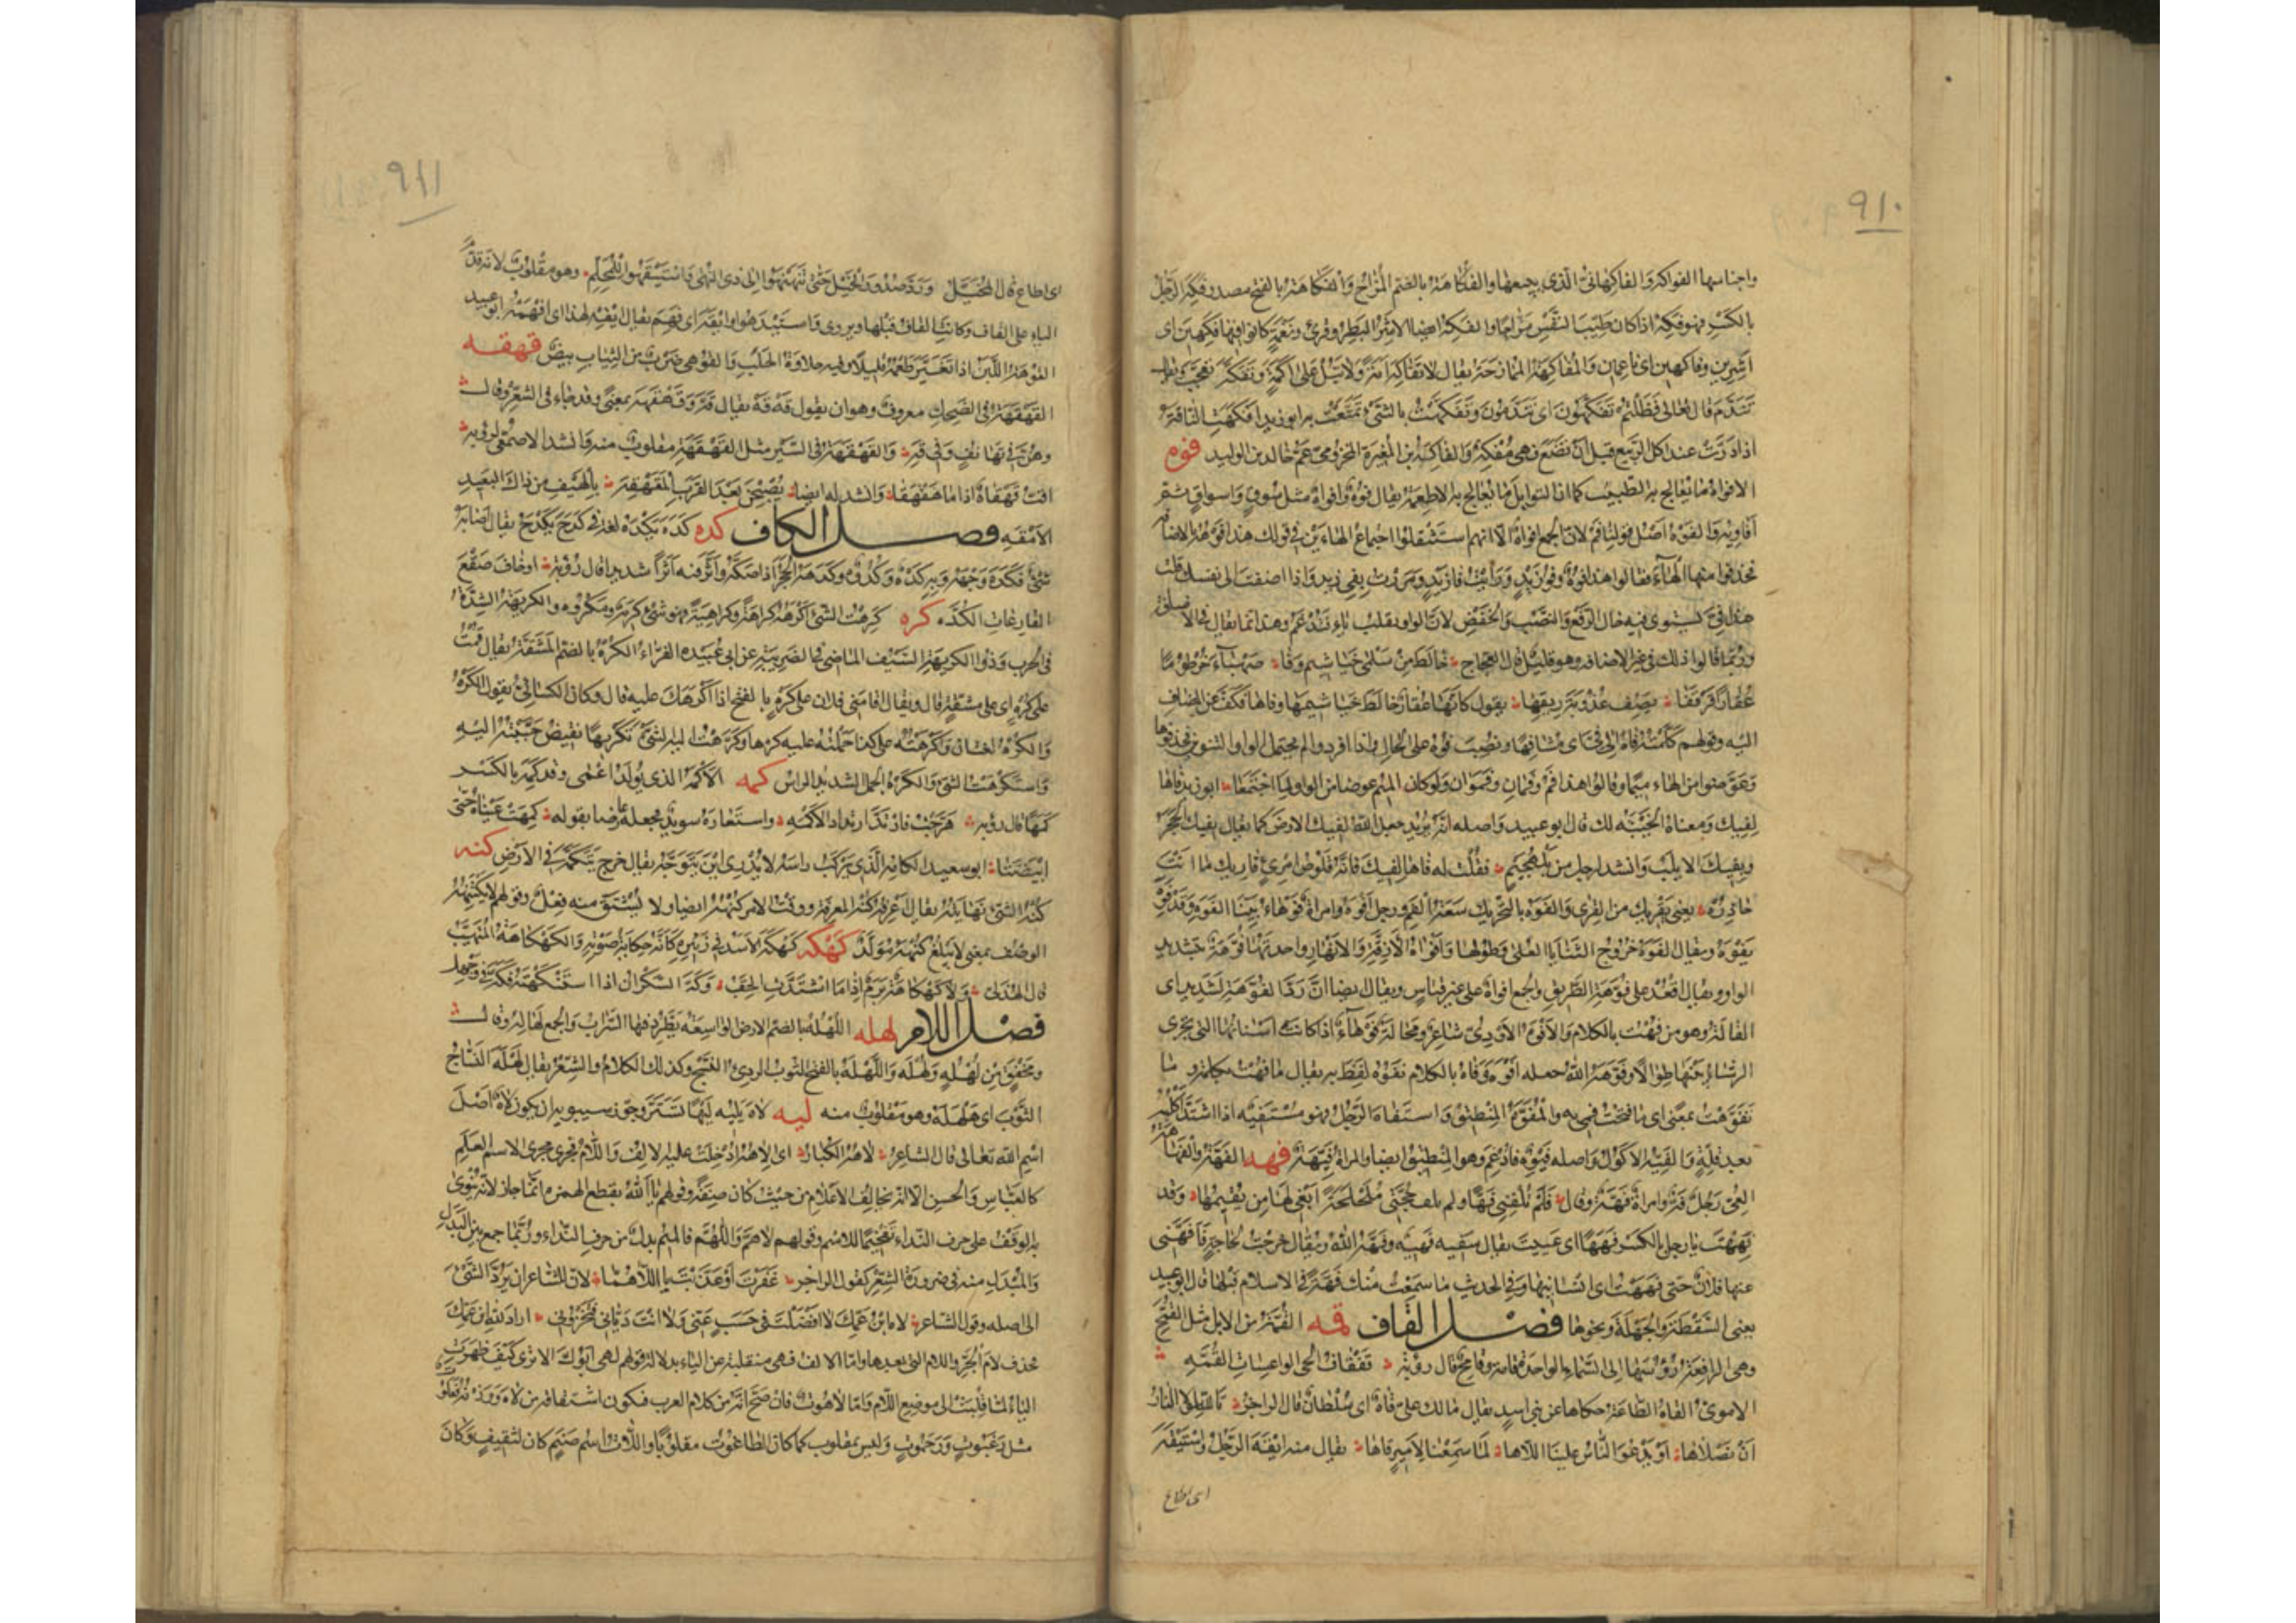 ٩١٠
واجناسها الفواكه والفاكهانى الذى يبيعها والفكاهة بالضم المزاح والفكاهة بالفتح مصدر فكه الرجل
بالكسر فهو فكه اذا كان طيب النفس مزاحا والفكه ايضا الاشر البطر وقرئ ونعمة كانوا فيها فكهين اى
اشرين وفاكهين اى ناعمين والمفاكهة الممازحة يقال لا تفاكه امة ولا تبل على اكمة وتفكه تعجب ويقال
تندم قال تعالى فظلتم تفكهون اى تندمون وتفكهت بالشئ تمتعت به ابو زيد افكهت الناقة
اذا درت عند اكل الربيع قبل ان تضع فهى مفكه والفاكه بن المغيرة المخزومى عم خالد بن الوليد فوه
الافواه ما يعالج به الطيب كما ان التوابل ما يعالج به الاطعمة يقال فوه وافواه مثل سوق واسواق ثم
افاويه والفوه اصل قولنا فم لان الجمع افواه الا انهم استثقلوا اجتماع الهاءين فى قولك هذا فوهه بالاضافة
فحذفوا منها الهاء فقالوا هذا فوه وفو زيد ورأيت فا زيد ومررت بفى زيد واذا اضفت الى نفسك قلت
هذا فى يستوى فيه حال الرفع والنصب والخفض لان الواو تقلب ياء فتدغم وهذا انما يقال فى الاضافة
وربما قالوا ذلك فى غير الاضافة وهو قليل قال العجاج خالط من سلمى خياشيم وفا صهباء خرطوما
عقارا قرقفا يصف عذوبة ريقها يقول كانها عقار خالط خياشيمها وفاها فكف عن المضاف
اليه وقولهم كلمته فاه الى فى اى مشافها ونصب فوه على الحال واذا افردوا لم يحتمل الواو التنوين فحذفوها
وعوضوا من الهاء ميما وقالوا هذا فم وفمان وفموان ولو كان الميم عوضا من الواو لما اجتمعا ابو زيد فاها
لفيك ومعناه الخيبة لك قال ابو عبيد واصله انه يريد جعل الله لفيك الارض كما يقال بفيك الحجر
وبفيك الاثلب وانشد لرجل من بلهجيم فقلت له فاها لفيك فانها قلوص امرئ قاريك ما انت
حاذره يعنى يقريك من القرى والفوه بالتحريك سعة الفم رجل افوه وامراة فوهاء بينا الفوه وقد فوه
يفوه ويقال الفوه خروج الثنايا العلى وطولها وافواه الازقة والانهار واحدتها فوهة بتشديد
الواو ويقال اقعد على فوهة الطريق والجمع افواه على غير قياس ويقال ايضا ان رد الفوهة لشديد اى
القالة وهو من فهت بالكلام والافوه الاودى شاعر ومحالة فوهاء اذا كانت اسنانها التى يجرى
الرشاء بينها طوالا وفوهه الله جعله افوه وفاه بالكلام يفوه لفظ به يقال ما فهت بكلمة وما
تفوهت بمعنى اى ما فتحت فمى به والمفوه المنطيق واستفاه الرجل فهو مستفيه اذا اشتد اكله
بعد قلة والفيه الاكول واصله فيوه فادغم وهو المنطيق ايضا والمراة فيهة فهه الفهة والفهاهة
العى رجل فه وامراة فهة وقال فلم تلفنى فها ولم تلف حجتى ملجلجة ابغى لها من يقيمها وقد
فههت يا رجل بالكسر فههًا اى عييت يقال سفيه فهيه وفهه الله ويقال خرجت لحاجة فافهنى
عنها فلان حتى فههت اى انسانيها وفى الحديث ما سمعت منك فهة فى الاسلام قبلها قال ابو عبيد
يعنى السقطة والجهلة ونحوها فصل القاف قمه القمه من الابل مثل القمح
وهى الرافعة رؤسها الى السماء الواحدة قامه وقامح قال رؤبة قفقاف الحى الواعسات القمه
الاموى القاه الطاعة حكاها عن بنى اسد يقال مالك على قاه اى سلطان قال الراجز تالله لولا النار
ان نصلاها او يدعو الناس علينا اللاها لما سمعنا لامير قاها يقال منه ايقه الرجل واستيقه
اى اطاع
٩١١
اى اطاع قال المخبل وردوا صدور الخيل حتى تنهنهوا الى ذى النهى واستيقهوا للمحلم وهو مقلوب لانه قدم
الياء على القاف وكانت القاف قبلها ويروى واستيدهوا وايقه اى فهم يقال ايقه لهذا اى افهمه ابو عبيد
القوهة اللبن اذا تغير طعمه قليلا وفيه حلاوة الحلب والقوهى ضرب من الثياب بيض قهقه
القهقهة فى الضحك معروف وهو ان يقول قه قه يقال قه وقهقهه بمعنى وقد جاء فى الشعر وقال
وهن فى تهانف وفى قه والقهقهة فى السير مثل الهقهقة مقلوب منه وانشد الاصمعى لرؤبة
اقب قهقاه اذا ما هقهقا وانشد له ايضا يصبحن بعد القرب المقهقه بالهيف من ذاك البعيد
الامقه فصل الكاف كده كده يكده لغة فى كدح يكدح يقال اصابه
شئ فكده وجهه وبه كده وكدوه وكدهه الحجر اذا صكه واثر فيه اثرا شديدا قال رؤبة او خاف صقع
القارعات الكده كره كرهت الشئ اكرهه كراهة وكراهية فهو شئ كريه ومكروه والكريهة الشدة
فى الحرب وذو الكريهة السيف الماضى فى الضريبة عن ابى عبيدة الفراء الكره بالضم المشقة يقال قمت
على كره اى على مشقة قال ويقال اقامنى فلان على كره بالفتح اذا اكرهك عليه قال وكان الكسائى يقول الكره
والكره لغتان واكرهته على كذا حملته عليه كرها وكرهت اليه الشئ تكريها نقيض حببته اليه
واستكرهت الشئ والكره الجمل الشديد الراس كمه الاكمه الذى يولد اعمى وقد كمه بالكسر
كمها قال رؤبة هرجت فارتد ارتداد الاكمه واستعاره سويد فجعله عارضا بقوله كمهت عيناه حتى
ابيضتا ابو سعيد الكامه الذى يركب راسه لا يدرى اين يتوجه يقال خرج يتكمه فى الارض كنه
كنه الشئ نهايته يقال عرفته كنه المعرفة ووقت الامر كنهه ايضا ولا يشتق منه فعل وقولهم لا يكتنهه
الوصف بمعنى لا يبلغ كنهه مولد كهكه كهكه الاسد فى زئيره كانه حكاية صوته والكهكاهة المتهيب
قال الهذلى ولا كهكاهة برم اذا ما اشتدت الحقب وكه السكران اذا استنكهته فكه فى وجهك
فصل اللام لهله اللهله بالضم الارض الواسعة يطرد فيها السراب والجمع لهاله وقال
ومخفق من لهله ولهله واللهله بالفتح الثوب الردئ النسج وكذلك الكلام والشعر يقال لهله النساج
الثوب اى هلهله وهو مقلوب منه ليه لاه يليه ليها تستر وجوز سيبويه ان يكون لاه اصل
اسم الله تعالى قال الشاعر لاهه الكبار اى الاهه ادخلت عليه الالف واللام فجرى مجرى الاسم العلم
كالعباس والحسن الا انه يخالف الاعلام من حيث كان صفة وقولهم يا الله بقطع الهمزة انما جاز لانه ينوى
به الوقف على حرف النداء تفخيما للاسم وقولهم لاهم واللهم فالميم بدل من حرف النداء وربما جمع بين البدل
والمبدل منه فى ضرورة الشعر كقول الراجز غفرت او عذبت يا اللاهما لان للشاعر ان يرد الشئ
الى اصله وقول الشاعر لاه ابن عمك لا افضلت فى حسب عنى ولا انت ديانى فتخزونى اراد لله ابن عمك
فحذف لام الجر واللام التى بعدها واما الالف فهى منقلبة عن الياء بدلالة قولهم لهى ابوك الا ترى كيف ظهرت
الياء لما قلبت الى موضع اللام واما لاهوت فان صح انه من كلام العرب فيكون اشتقاقه من لاه ووزنه فعلوت
مثل رغبوت ورحموت وليس بمقلوب كما كان الطاغوت مقلوبا واللات اسم صنم كان لثقيف وكان